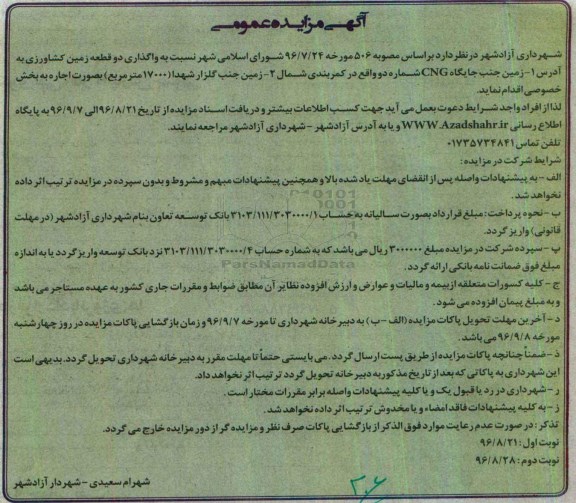 آگهی مزایده عمومی
شهرداری آزادشهر در نظر دارد بر اساس مصوبه ۵۰۶ مورخه ۹۶/۷/۲۴ شورای اسلامی شهر نسبت به واگذاری دو قطعه زمین کشاورزی به
آدرس ۱- زمین جنب جایگاه CNG شماره دو واقع در کمربندی شمال ۲- زمین جنب گلزار شهدا (۱۷۰۰۰ متر مربع) بصورت اجاره به بخش
خصوصی اقدام نماید.
لذا از افراد واجد شرایط دعوت بعمل می آید جهت کسب اطلاعات بیشتر و دریافت اسناد مزایده از تاریخ ۹۶/۸/۲۱ الی ۹۶/۹/۷ به پایگاه
اطلاع رسانی WWW.Azadshahr.ir و یا به آدرس آزادشهر - شهرداری آزادشهر مراجعه نمایند.
تلفن تماس ۰۱۷۳۵۷۳۴۸۴۱
شرایط شرکت در مزایده :
الف - به پیشنهادات واصله پس از انقضای مهلت یاد شده بالا و همچنین پیشنهادات مبهم و مشروط و بدون سپرده در مزایده ترتیب اثر داده
نخواهد شد.
ب - نحوه پرداخت: مبلغ قرارداد بصورت سالیانه به حساب ۳۱۰۳/۱۱۱/۳۰۳۰۰۰۰/۱ بانک توسعه تعاون بنام شهرداری آزادشهر (در مهلت
قانونی) واریز گردد.
پ - سپرده شرکت در مزایده مبلغ ۳۰۰۰۰۰۰ ریال می باشد که به شماره حساب ۳۱۰۳/۱۱۱/۳۰۳۰۰۰۰/۴ نزد بانک توسعه واریز گردد یا به اندازه
مبلغ فوق ضمانت نامه بانکی ارائه گردد.
ج - کلیه کسورات متعلقه از بیمه و مالیات و عوارض و ارزش افزوده نظائر آن مطابق ضوابط و مقررات جاری کشور به عهده مستاجر می باشد
و به مبلغ پیمان افزوده می شود.
د - آخرین مهلت تحویل پاکات مزایده (الف - ب) به دبیرخانه شهرداری تا مورخه ۹۶/۹/۷ و زمان بازگشایی پاکات مزایده در روز چهارشنبه
مورخه ۹۶/۹/۸ می باشد.
ذ - ضمناً چنانچه پاکات مزایده از طریق پست ارسال گردد. می بایستی حتماً تا مهلت مقرر به دبیرخانه شهرداری تحویل گردد. بدیهی است
این شهرداری به پاکاتی که بعد از تاریخ مذکور به دبیرخانه تحویل گردد ترتیب اثر نخواهد داد.
ر - شهرداری در رد یا قبول یک و یا کلیه پیشنهادات واصله برابر مقررات مختار است.
ز - به کلیه پیشنهادات فاقد امضاء و یا مخدوش ترتیب اثر داده نخواهد شد.
تذکر : در صورت عدم رعایت موارد فوق الذکر از بازگشایی پاکات صرف نظر و مزایده گر از دور مزایده خارج می گردد.
نوبت اول : ۹۶/۸/۲۱
نوبت دوم : ۹۶/۸/۲۸
شهرام سعیدی - شهردار آزادشهر
۲۰۶